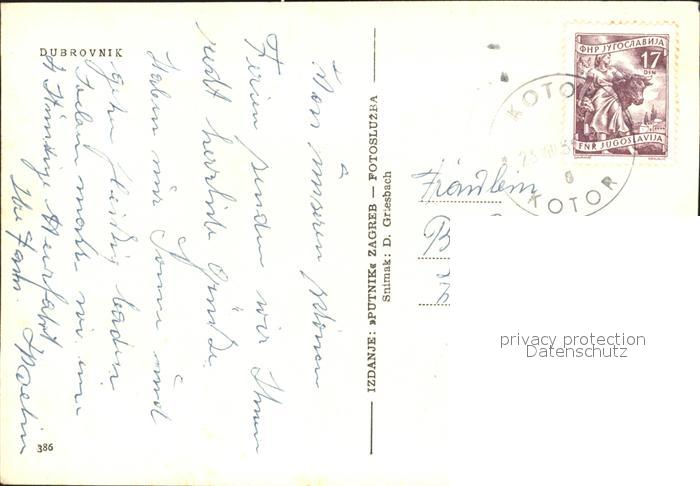 DUBROVNIK
Von unseren schönen
Ferien senden wir Ihnen
recht herzliche Grüße.
Haben nur Sonne und
gehn fleißig baden.
Soeben machen wir eine
4 stündige Meerfahrt
Ihre Fam.
386
IZDANJE: »PUTNIK« ZAGREB — FOTOSLUŽBA
Snimak: D. Griesbach
ФНР ЈУГОСЛАВИЈА
17
DIN
FNR JUGOSLAVIJA
KOTOR
KOTOR
Fräulein
B
privacy protection
Datenschutz